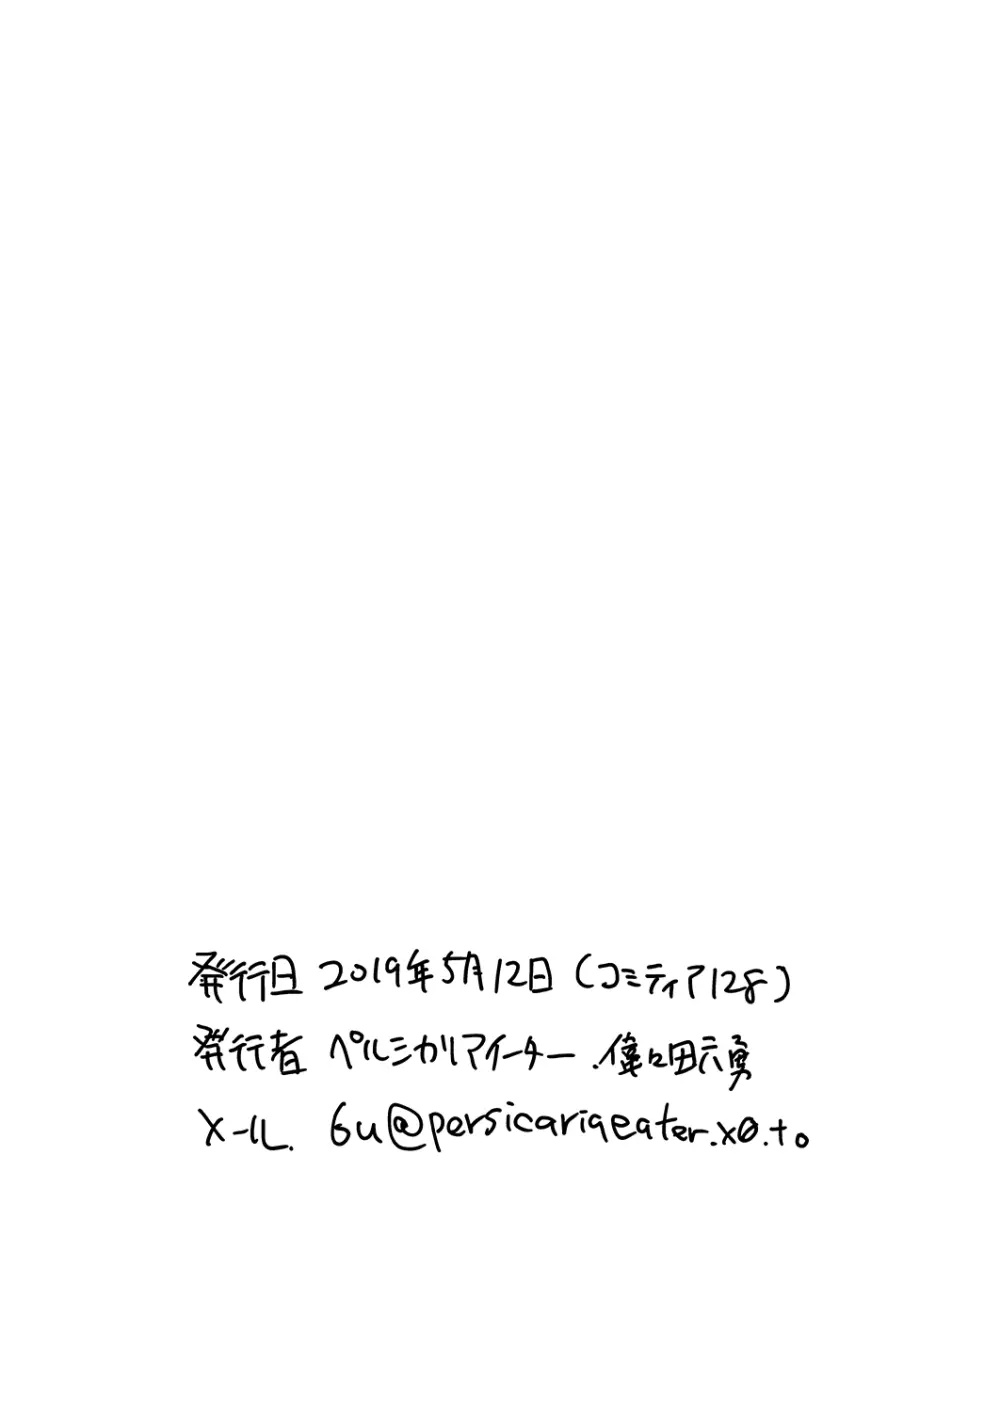 発行日 2019年5月12日 (コミティア128)
発行者 ペルシカリアイーター.偉口田六勇
メール. 6u@persicariaeater.x0.to